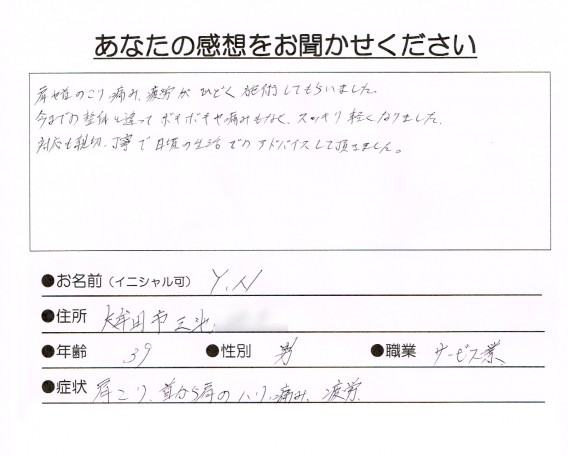 あなたの感想をお聞かせください
肩や首のこり、痛み、疲労がひどく施術してもらいました。
今までの整体と違ってボキボキや痛みもなく、スッキリ軽くなりました。
対応も親切、丁寧で日頃の生活でのアドバイスして頂きました。
●お名前（イニシャル可） Y.N
●住所 大牟田市三池
●年齢 39 ●性別 男 ●職業 サービス業
●症状 肩こり、首から肩のハリ、痛み、疲労